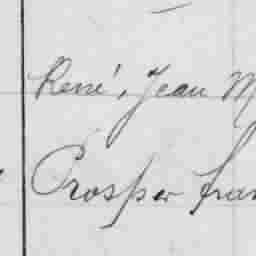 René, Jean M
Prosper fran